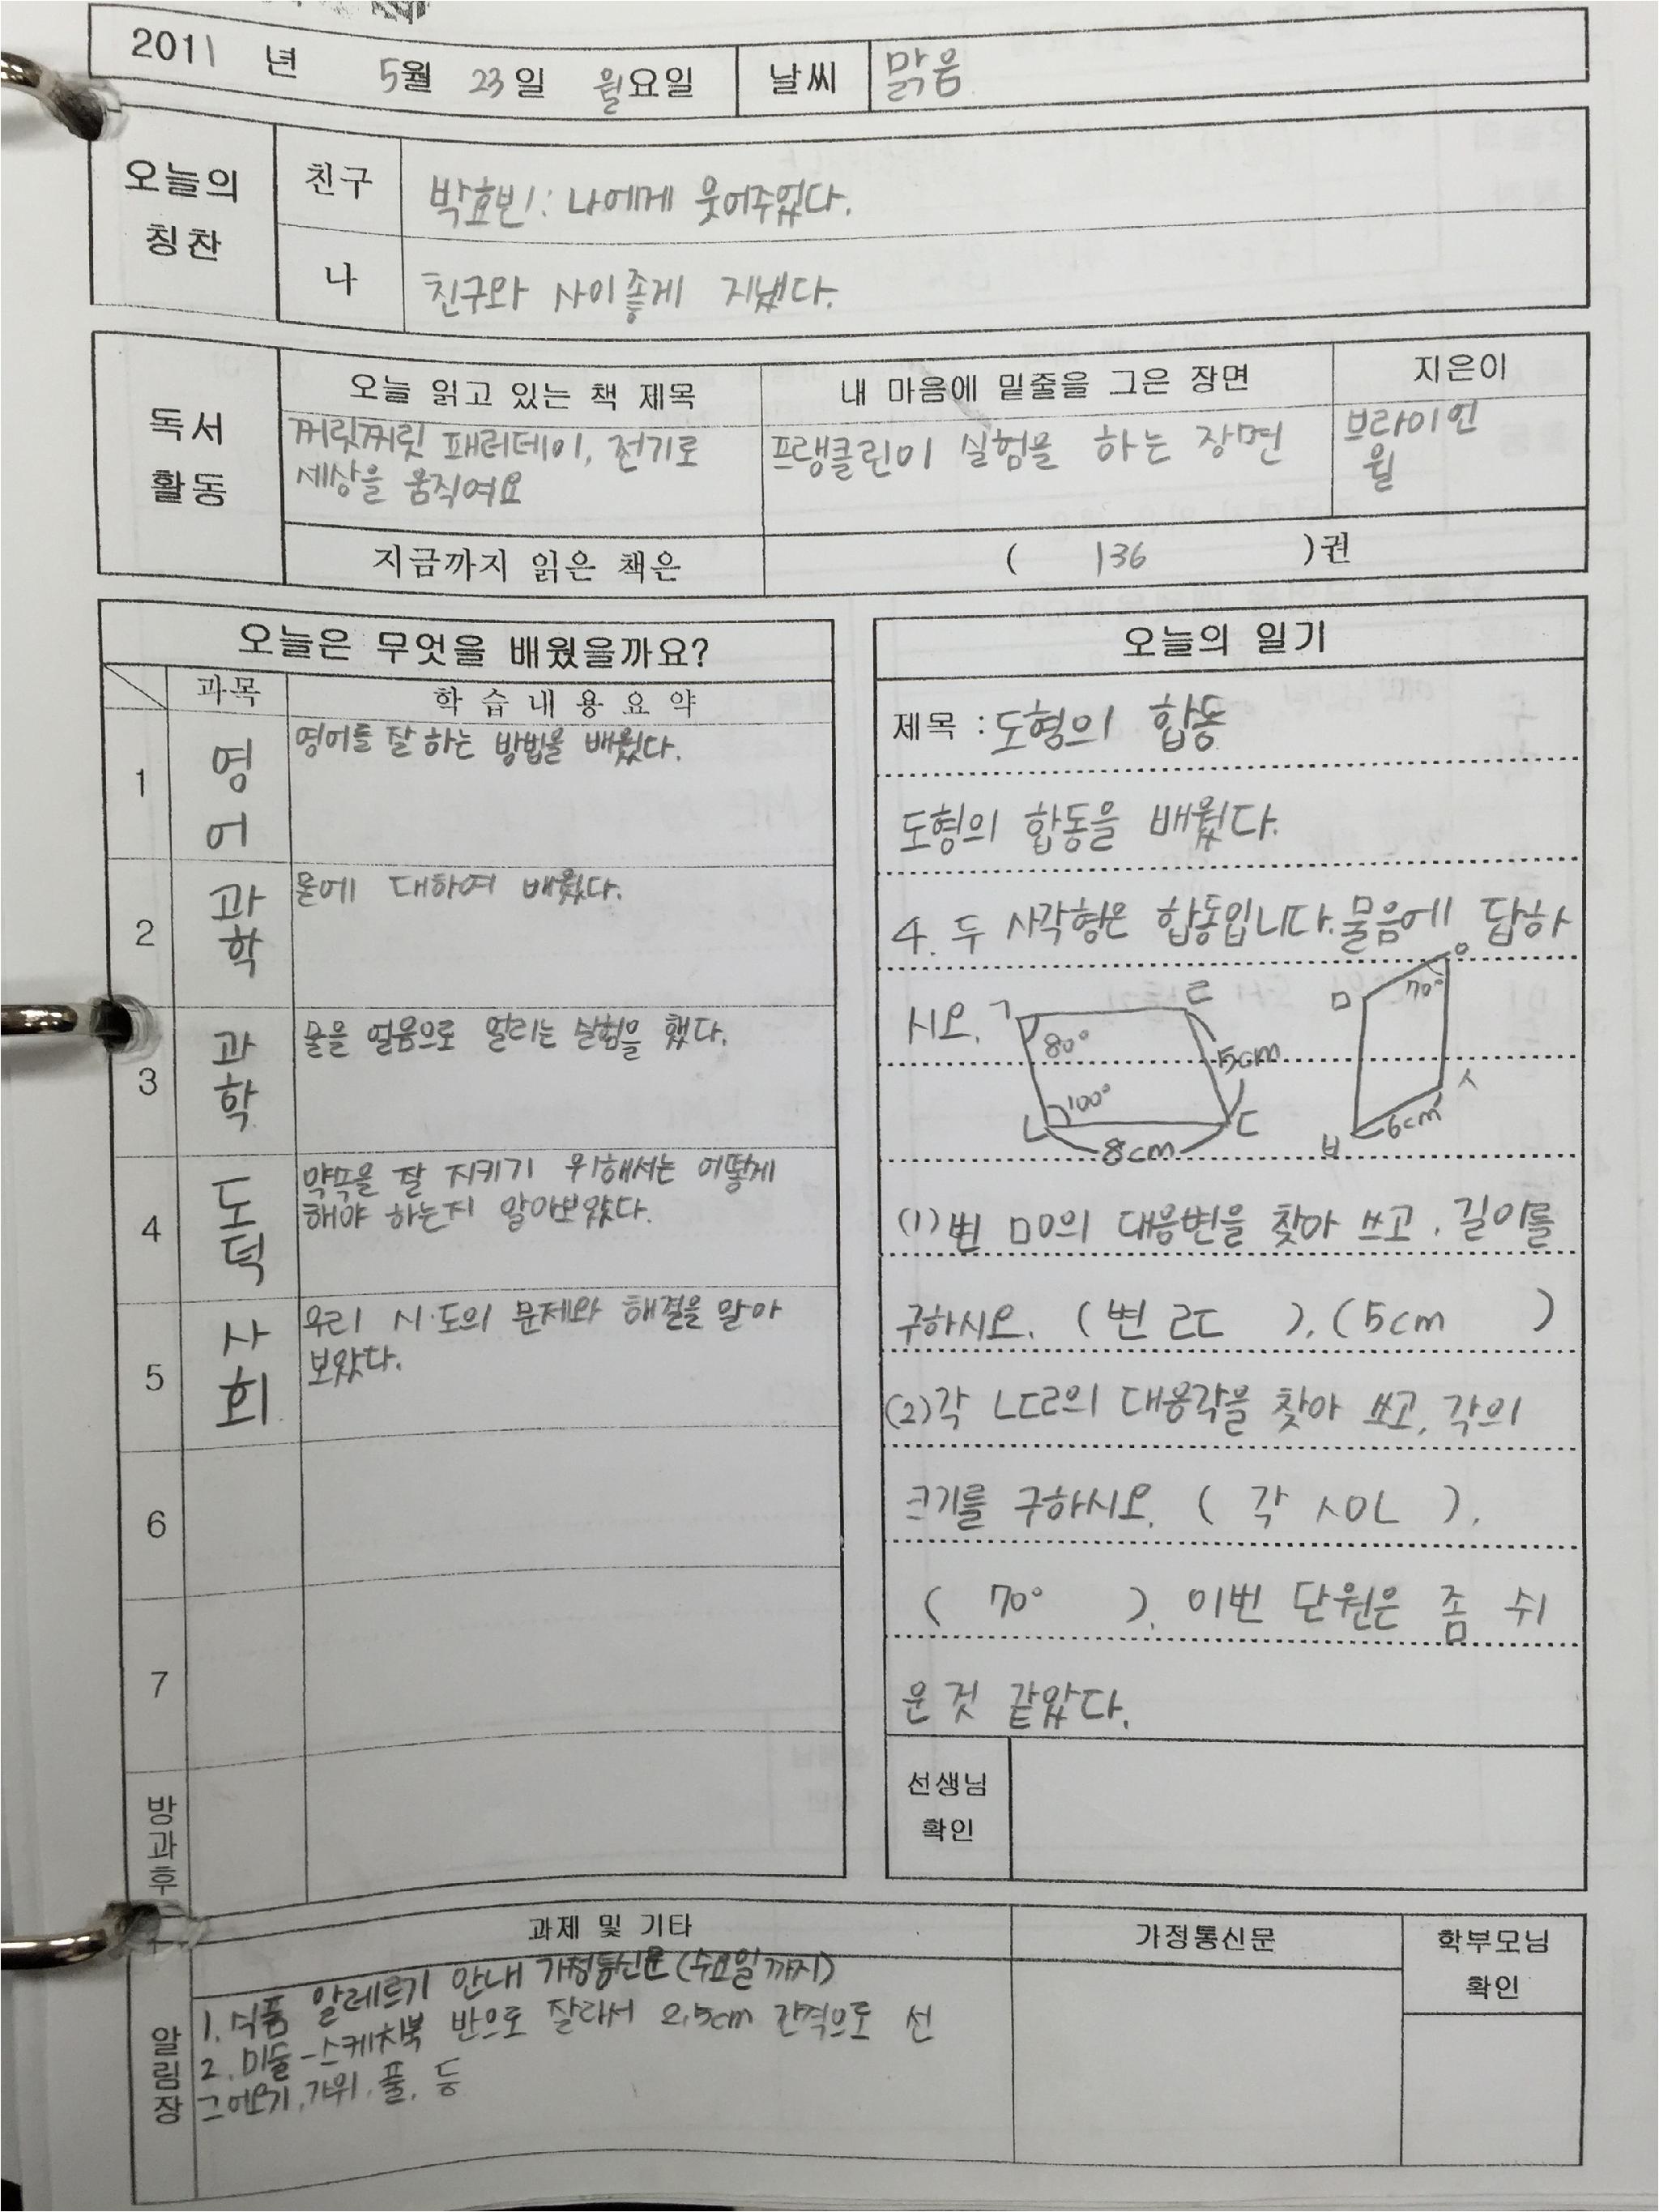 2011 년 5월 23일 월요일 날씨 맑음
오늘의 칭찬
친구 박효빈: 나에게 웃어주었다.
나 친구와 사이좋게 지냈다.
독서 활동
오늘 읽고 있는 책 제목 내 마음에 밑줄을 그은 장면 지은이
찌릿찌릿 패러데이, 전기로 세상을 움직여요
프랭클린이 실험을 하는 장면
브라이언 월
지금까지 읽은 책은 ( 136 )권
오늘은 무엇을 배웠을까요?
과목 학습내용요약
1 영어 영어를 잘 하는 방법을 배웠다.
2 과학 물에 대하여 배웠다.
3 과학 물을 얼음으로 얼리는 실험을 했다.
4 도덕 약속을 잘 지키기 위해서는 어떻게
해야 하는지 알아보았다.
5 사회 우리 시·도의 문제와 해결을 알아
보았다.
6
7
방과후
오늘의 일기
제목 : 도형의 합동
도형의 합동을 배웠다.
4. 두 사각형은 합동입니다. 물음에 답하
시오.
ㄱ ㄹ 80° 5cm 100° ㄴ ㄷ 8cm
ㅁ ㅇ 70° ㅅ ㅂ 6cm
(1) 변 ㅁㅇ의 대응변을 찾아 쓰고, 길이를
구하시오. ( 변 ㄹㄷ ), ( 5cm )
(2) 각 ㄴㄷㄹ의 대응각을 찾아 쓰고, 각의
크기를 구하시오. ( 각 ㅅㅇㄴ ),
( 70° ). 이번 단원은 좀 쉬
운것 같았다.
선생님 확인
알림장
과제 및 기타 가정통신문 학부모님 확인
1. 식품 알레르기 안내 가정통신문 (수요일까지)
2. 미술 - 스케치북 반으로 잘라서 2.5cm 간격으로 선
그어오기, 가위, 풀, 등